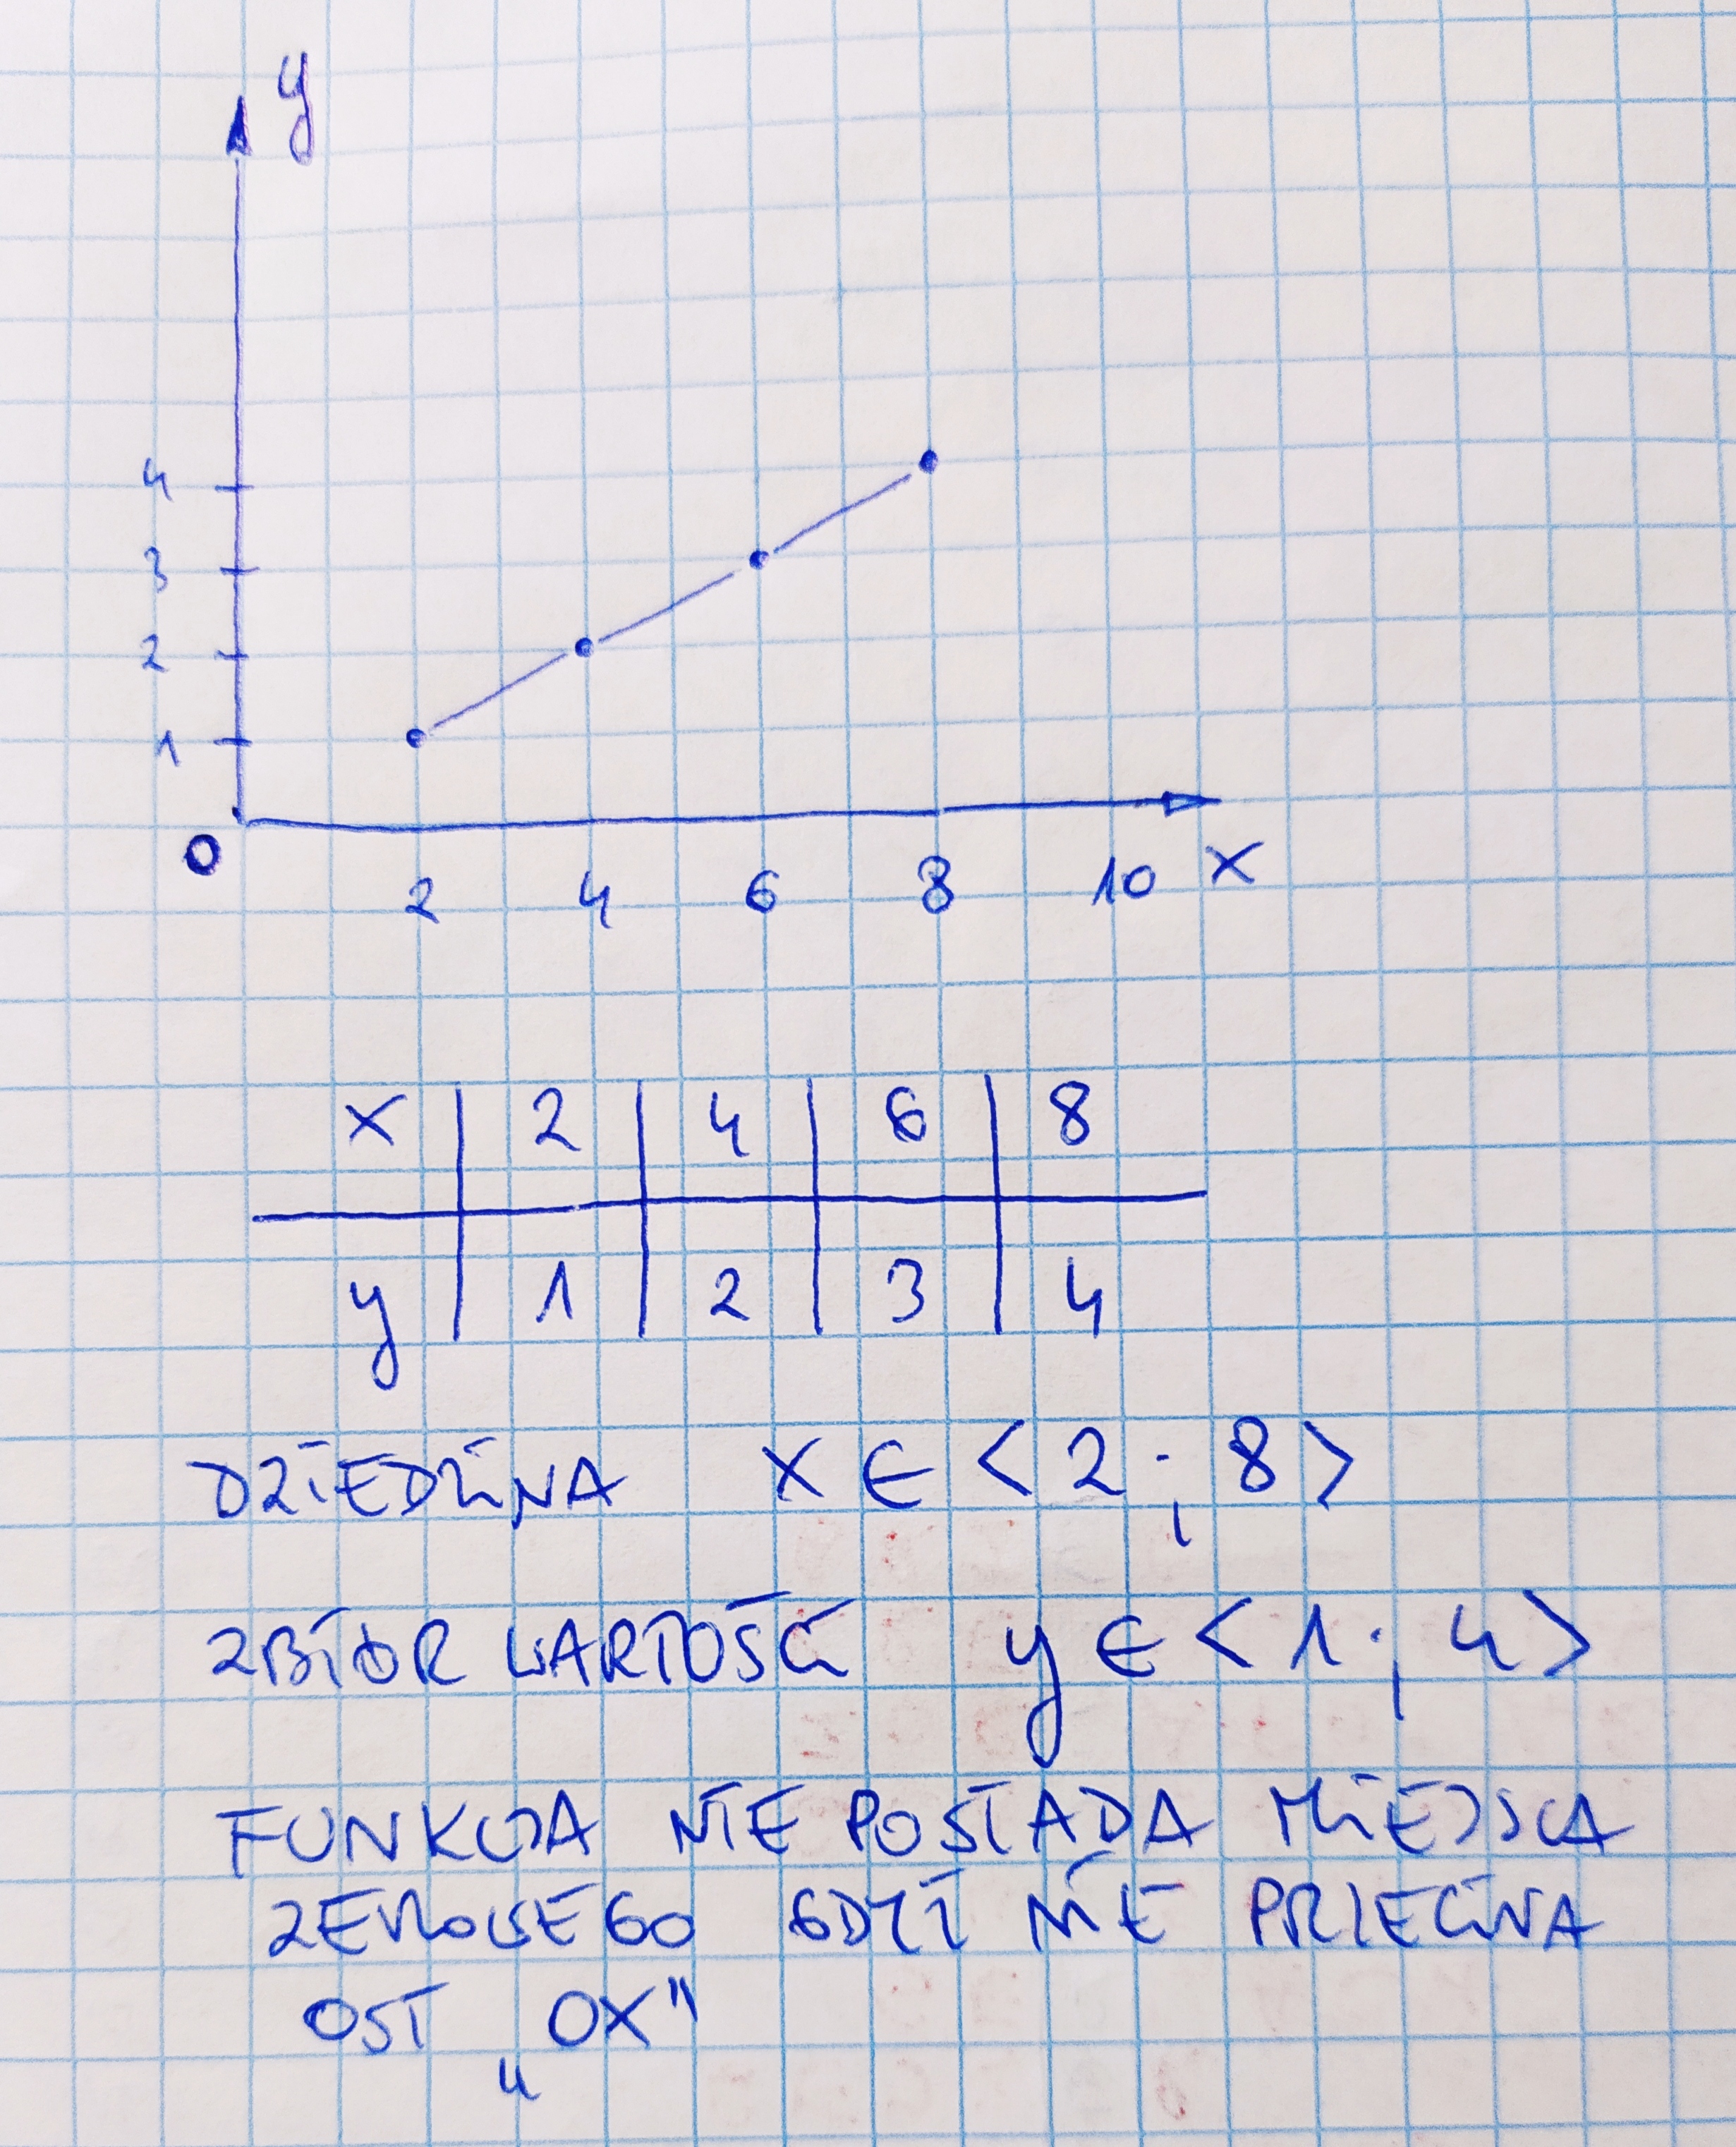 y
4
3
2
1
0
2 4 6 8 10 x
x 2 4 6 8
y 1 2 3 4
DZIEDZINA x ∈ <2 ; 8>
ZBIÓR WARTOŚCI y ∈ <1 ; 4>
FUNKCJA NIE POSIADA MIEJSCA
ZEROWEGO GDYŻ NIE PRZECINA
OSI „OX"